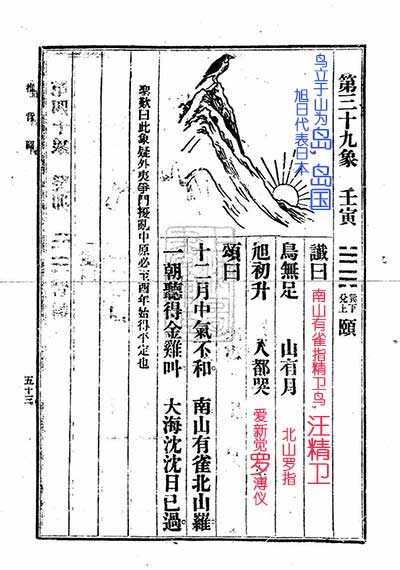 第三十九象 壬寅 巽下 兌上 頤
鸟立于山为岛,岛国
旭日代表日本
讖曰
南山有雀指精卫鸟,汪精卫
鳥無足 山有月
北山罗指
旭初升 人都哭
爱新觉罗溥仪
頌曰
十二月中氣不和 南山有雀北山羅
一朝聽得金雞叫 大海沈沈日已過
聖歎曰此象疑外夷爭鬥擾亂中原必至酉年始得平定也
推背圖
五十三